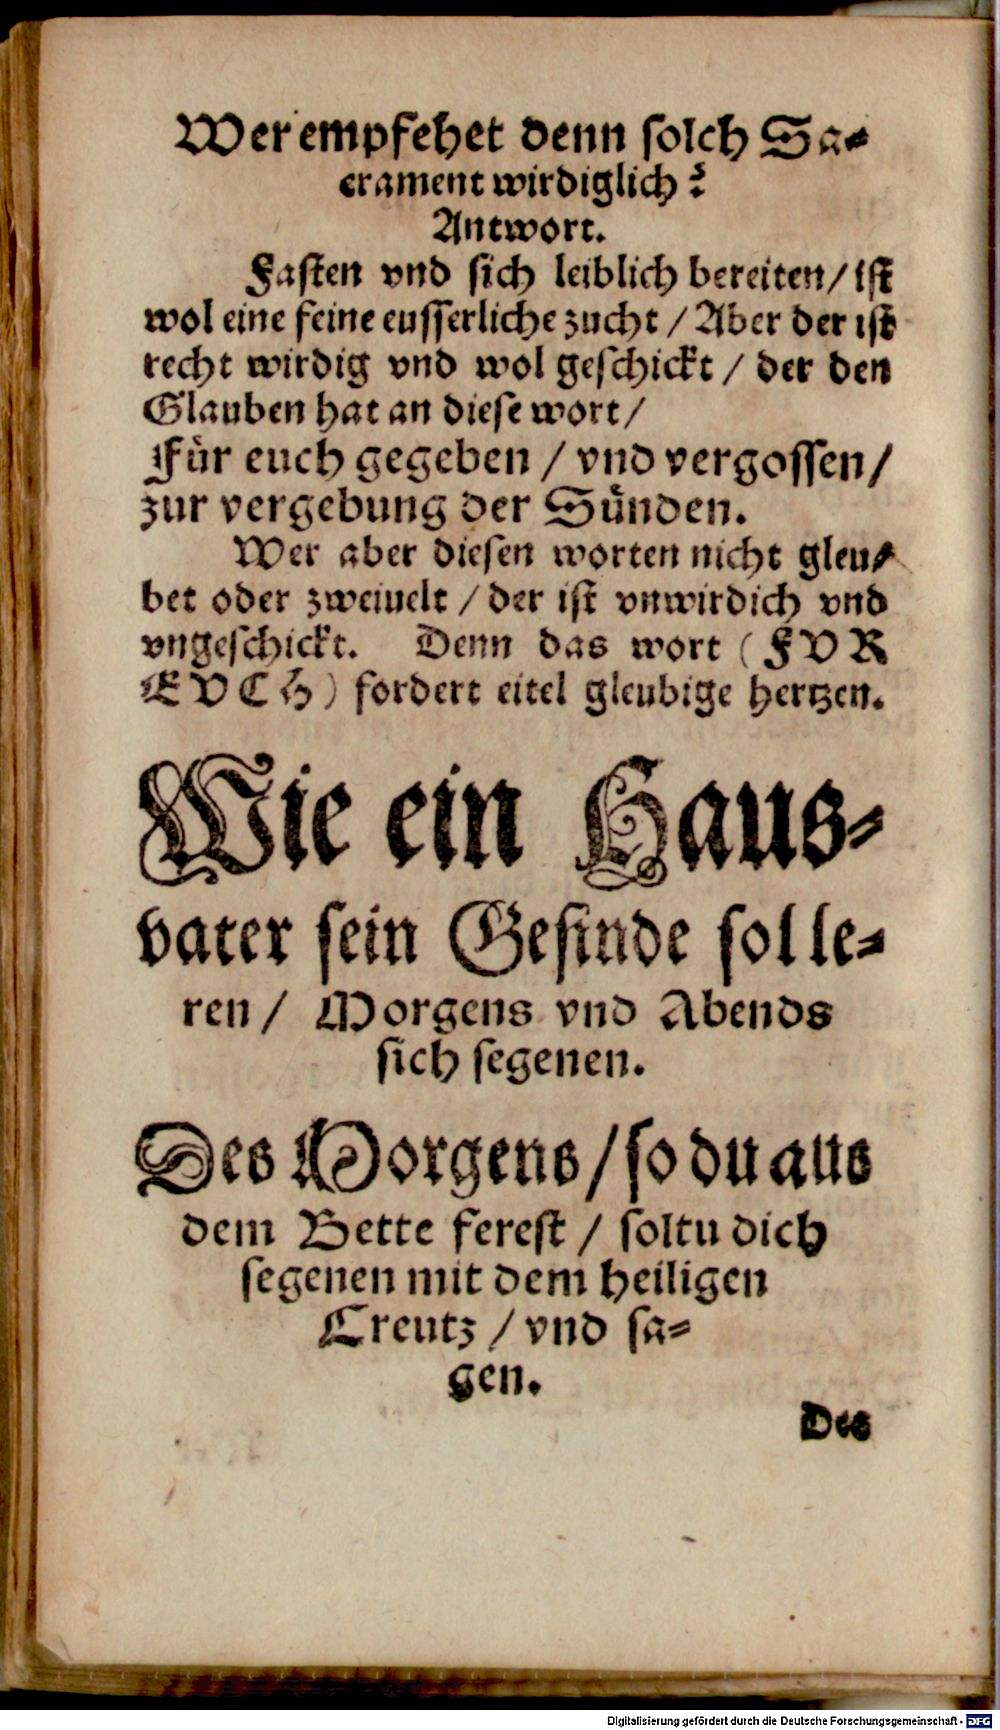 Wer empfehet denn ſolch Sa⸗
crament wirdiglich?
Antwort.
Faſten vnd ſich leiblich bereiten/ iſt
wol eine feine euſſerliche zucht / Aber der iſt
recht wirdig vnd wol geſchickt / der den
Glauben hat an dieſe wort/
Für euch gegeben / vnd vergoſſen/
zur vergebung der Sünden.
Wer aber dieſen worten nicht gleu⸗
bet oder zweiuelt / der iſt vnwirdich vnd
vngeſchickt. Denn das wort (FVR
EVCH) fordert eitel gleubige hertzen.
Wie ein Haus⸗
vater ſein Geſinde ſol le⸗
ren / Morgens vnd Abends
ſich ſegenen.
Des Morgens / ſo du aus
dem Bette fereſt / ſoltu dich
ſegenen mit dem heiligen
Creutz / vnd ſa⸗
gen.
Des
Digitalisierung gefördert durch die Deutsche Forschungsgemeinschaft - DFG